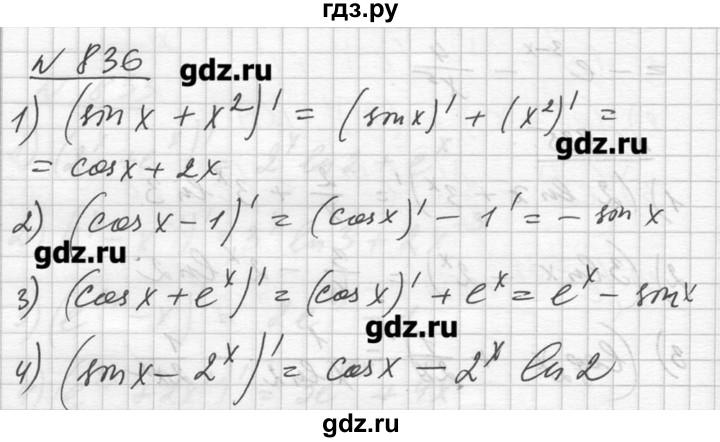 гдз.ру
№ 836
gdz.ru
1) (sin x + x²)' = (sin x)' + (x²)' =
gdz.ru
= cos x + 2x
2) (cos x - 1)' = (cos x)' - 1' = - sin x
gdz.ru
3) (cos x + eˣ)' = (cos x)' + eˣ = eˣ - sin x
gdz.ru
4) (sin x - 2ˣ)' = cos x - 2ˣ ln 2
gdz.ru